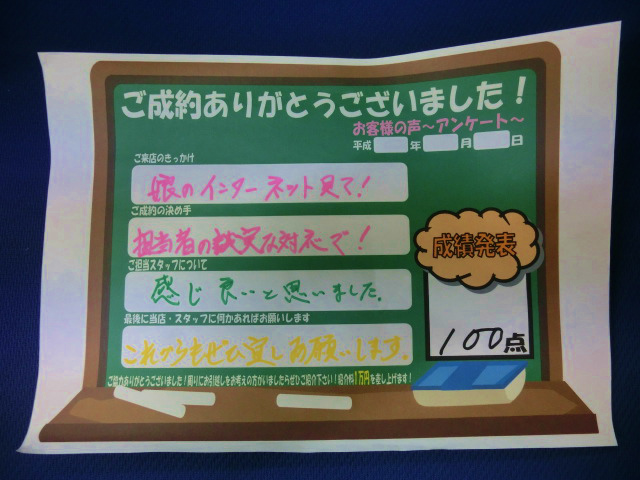 ご成約ありがとうございました！
お客様の声～アンケート～
平成 年 月 日
ご来店のきっかけ
娘のインターネット見て！
ご成約の決め手
担当者の誠実な対応で！
ご担当スタッフについて
感じ良いと思いました。
最後に当店・スタッフに何かあればお願いします
これからもぜひ宜しお願いします。
ご協力ありがとうございました！周りにお引越しをお考えの方がいましたらぜひご紹介下さい！紹介料1万円を差し上げます！
成績発表
100点